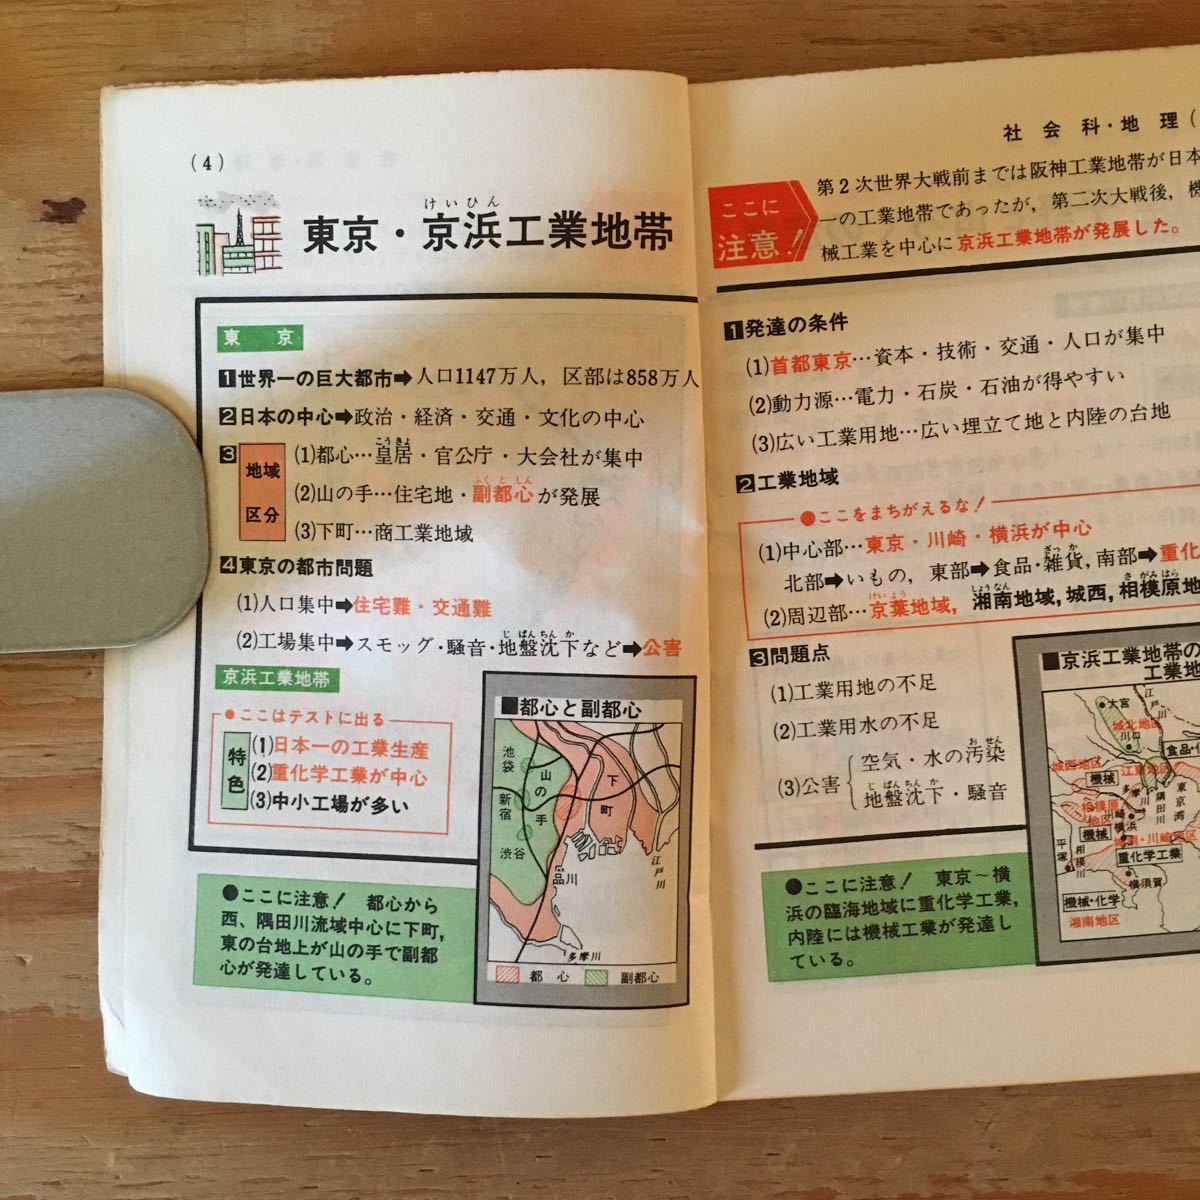 (4)
けいひん
東京・京浜工業地帯
東京
1世界一の巨大都市➡人口1147万人，区部は858万人
2日本の中心➡政治・経済・交通・文化の中心
3地域区分
こうきょ
(1)都心…皇居・官公庁・大会社が集中
ふくとしん
(2)山の手…住宅地・副都心が発展
(3)下町…商工業地域
4東京の都市問題
(1)人口集中➡住宅難・交通難
じばんちんか
(2)工場集中➡スモッグ・騒音・地盤沈下など➡公害
京浜工業地帯
●ここはテストに出る
特色
(1)日本一の工業生産
(2)重化学工業が中心
(3)中小工場が多い
■都心と副都心
池袋
山の手
下町
新宿
渋谷
品川
江戸川
多摩川
都心
副都心
●ここに注意！ 都心から
西、隅田川流域中心に下町，
東の台地上が山の手で副都
心が発達している。
社会科・地理(
ここに
注意！
第2次世界大戦前までは阪神工業地帯が日本
一の工業地帯であったが，第二次大戦後，機
械工業を中心に京浜工業地帯が発展した。
1発達の条件
(1)首都東京…資本・技術・交通・人口が集中
(2)動力源…電力・石炭・石油が得やすい
(3)広い工業用地…広い埋立て地と内陸の台地
2工業地域
●ここをまちがえるな！
(1)中心部…東京・川崎・横浜が中心
ざっか
北部➡いもの，東部➡食品・雑貨，南部➡重化
けいよう しょうなん さがみはら
(2)周辺部…京葉地域，湘南地域，城西，相模原地
3問題点
(1)工業用地の不足
(2)工業用水の不足
おせん
(3)公害 空気・水の汚染
じばんちんか
地盤沈下・騒音
■京浜工業地帯の
工業地
大宮
江戸川
城北地区
川口
食品・
城西地区
機械
江東地区
多摩川
隅田川
東京湾
相模原地区
川崎
横浜
機械
城南・川崎地区
重化学工業
平塚
相模川
横須賀
機械・化学
湘南地区
●ここに注意！ 東京〜横
浜の臨海地域に重化学工業，
内陸には機械工業が発達し
ている。